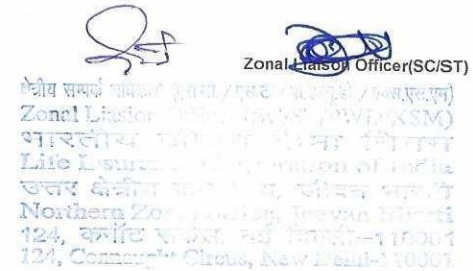 Zonal Liaison Officer(SC/ST)
क्षेत्रीय सम्पर्क
Zonal Liasion /PWD/XSM)
भारतीय जीवन बीमा निगम
Life Insurance Corporation of India
उत्तर क्षेत्रीय जीवन भारती
Northern Zonal Office, Jeevan Bharti
124, कनॉट सर्कस, नई दिल्ली-110001
124, Connaught Circus, New Delhi-110001